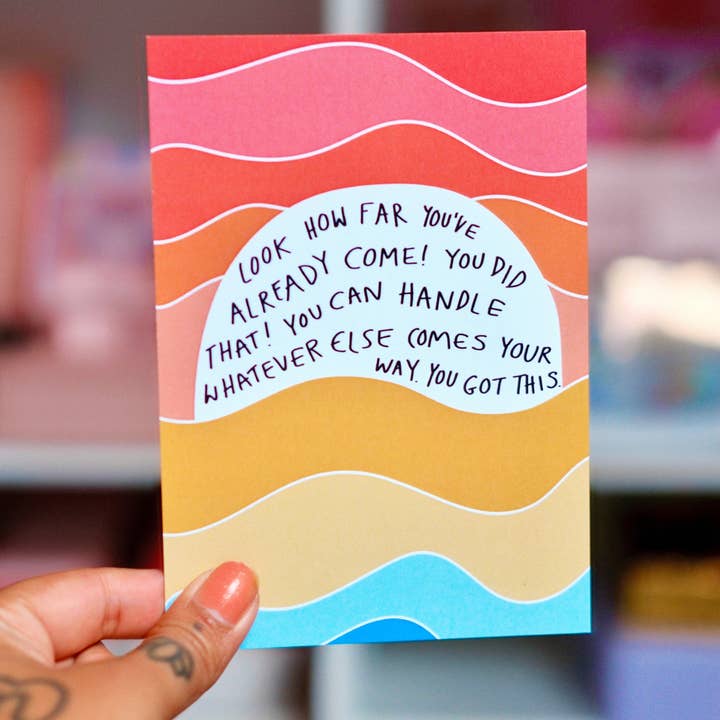 LOOK HOW FAR YOU'VE
ALREADY COME! YOU DID
THAT! YOU CAN HANDLE
WHATEVER ELSE COMES YOUR
WAY. YOU GOT THIS.